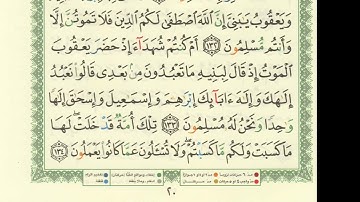 وَيَعْقُوبُ يَٰبَنِىَّ إِنَّ ٱللَّهَ ٱصْطَفَىٰ لَكُمُ ٱلدِّينَ فَلَا تَمُوتُنَّ إِلَّا
وَأَنتُم مُّسْلِمُونَ ١٣٢ أَمْ كُنتُمْ شُهَدَآءَ إِذْ حَضَرَ يَعْقُوبَ
ٱلْمَوْتُ إِذْ قَالَ لِبَنِيهِ مَا تَعْبُدُونَ مِنۢ بَعْدِى قَالُوا۟ نَعْبُدُ
إِلَٰهَكَ وَإِلَٰهَ ءَابَآئِكَ إِبْرَٰهِۦمَ وَإِسْمَٰعِيلَ وَإِسْحَٰقَ إِلَٰهًا
وَٰحِدًا وَنَحْنُ لَهُۥ مُسْلِمُونَ ١٣٣ تِلْكَ أُمَّةٌ قَدْ خَلَتْ لَهَا
مَا كَسَبَتْ وَلَكُم مَّا كَسَبْتُمْ وَلَا تُسْـَٔلُونَ عَمَّا كَانُوا۟ يَعْمَلُونَ ١٣٤
٢٠